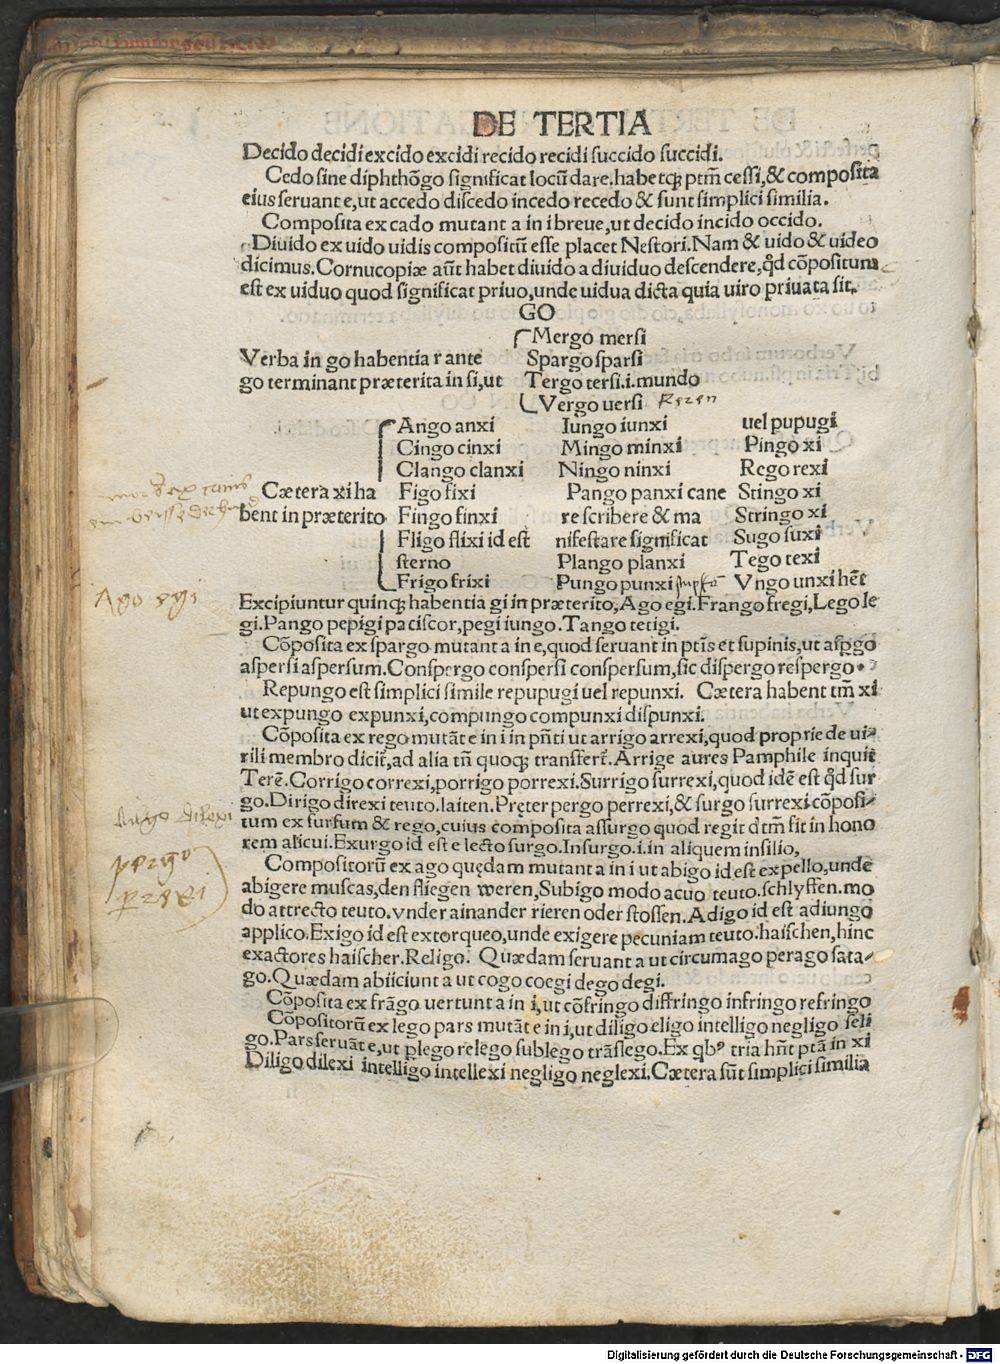 DE TERTIA
Decido decidi excido excidi recido recidi succido succidi.
Cedo sine diphthõgo significat locũ dare. habetqꝫ ptm̃ cessi, & composita
eius seruant e, ut accedo discedo incedo recedo & sunt simplici similia.
Composita ex cado mutant a in i breue, ut decido incido occido.
Diuido ex uido uidis compositũ esse placet Nestori. Nam & uido & uideo
dicimus. Cornucopiæ aũt habet diuido a diuiduo descendere, qđ cõpositum
est ex uiduo quod significat priuo, unde uidua dicta quia uiro priuata sit.
GO
Mergo mersi
Verba in go habentia r ante Spargo sparsi
go terminant præterita in si, ut Tergo tersi .i. mundo
Vergo uersi
Ango anxi Iungo iunxi uel pupugi
Cingo cinxi Mingo minxi Pingo xi
Clango clanxi Ningo ninxi Rego rexi
Cætera xi ha Figo fixi Pango panxi cane Stingo xi
bent in præterito Fingo finxi re scribere & ma Stringo xi
Fligo flixi id est nifestare significat Sugo suxi
sterno Plango planxi Tego texi
Frigo frixi Pungo punxi Vngo unxi hẽt
Ago egi
Excipiuntur quinqꝫ habentia gi in præterito, Ago egi. Frango fregi, Lego le
gi. Pango pepigi paciscor, pegi iungo. Tango tetigi.
Cõposita ex spargo mutant a in e, quod seruant in ptis et supinis, ut aspgo
aspersi aspersum. Conspergo conspersi conspersum, sic dispergo respergo.
Repungo est simplici simile repupugi uel repunxi. Cætera habent tm̃ xi
ut expungo expunxi, compungo compunxi dispunxi.
Cõposita ex rego mutãt e in i in pñti ut arrigo arrexi, quod proprie de ui-
rili membro dicit̃, ad alia tñ quoqꝫ transfert̃. Arrige aures Pamphile inquit
Terẽ. Corrigo correxi, porrigo porrexi. Surrigo surrexi, quod idẽ est qđ sur
go. Dirigo direxi teuto. laiten. Pręter pergo perrexi, & surgo surrexi cõposi-
tum ex sursum & rego, cuius composita assurgo quod regit dtm̃ fit in hono
rem alicui. Exurgo id est e lecto surgo. Insurgo .i. in aliquem insilio,
Compositorũ ex ago quędam mutant a in i ut abigo id est expello, unde
abigere muscas, den fliegen weren, Subigo modo acuo teuto. schlyffen. mo
do attrecto teuto. vnder ainander rieren oder stossen. Adigo id est adiungo
applico. Exigo id est extorqueo, unde exigere pecuniam teuto. haischen, hinc
exactores haischer. Religo. Quædam seruant a ut circumago perago sata-
go. Quædam abiiciunt a ut cogo coegi dego degi.
Cõposita ex frãgo uertunt a in i, ut cõfringo diffringo infringo refringo
Cõpositorũ ex lego pars mutãt e in i, ut diligo eligo intelligo negligo seli
go. Pars seruãt e, ut plego relego sublego trãslego. Ex qbꝰ tria hñt ptã in xi
Diligo dilexi intelligo intellexi negligo neglexi. Cætera sũt simplici similia
Digitalisierung gefördert durch die Deutsche Forschungsgemeinschaft - DFG